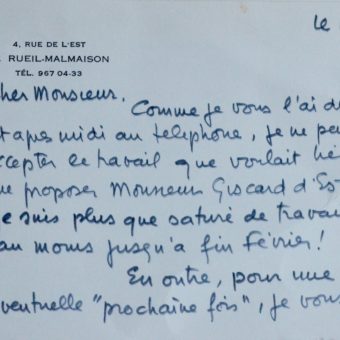 le
4, RUE DE L'EST
RUEIL-MALMAISON
TÉL. 967 04-33
cher Monsieur.
Comme je vous l'ai d
t apès midi au téléphone, je ne pe
ccepter le travail que voulait
e proposer Monsieur Giscard d'Es
je suis plus que saturé de travau
au moins jusqu'à fin février!
En outre, pour une
ventuelle "prochaine fois", je vous